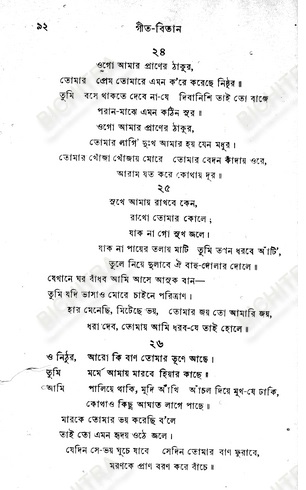 ৯২ গীত-বিতান
২৪
ওগো আমার প্রাণের ঠাকুর,
তোমার প্রেম তোমারে এমন ক'রে করেছে নিষ্ঠুর॥
তুমি বসে থাকতে দেবে না-যে দিবানিশি তাই তো বাজে
পরান-মাঝে এমন কঠিন সুর॥
ওগো আমার প্রাণের ঠাকুর,
তোমার লাগি দুঃখ আমার হয় যেন মধুর।
তোমার খোঁজা খোঁজায় মোরে তোমার বেদন কাঁদায় ওরে,
আরাম যত করে কোথায় দূর॥
২৫
সুখে আমায় রাখবে কেন,
রাখো তোমার কোলে;
যাক না গো সুখ জলে।
যাক না পায়ের তলার মাটি তুমি তখন ধরবে আঁটি',
তুলে নিয়ে দুলাবে ঐ বাহু-দোলার দোলে॥
যেখানে ঘর বাঁধব আমি আসে আসুক বান—
তুমি যদি ভাসাও মোরে চাইনে পরিত্রাণ।
হার মেনেছি, মিটেছে ভয়, তোমার জয় তো আমারি জয়,
ধরা দেব, তোমায় আমি ধরব-যে তাই হোলে॥
২৬
ও নিঠুর, আরো কি বাণ তোমার তূণে আছে।
তুমি মর্মে আমায় মারবে হিয়ার কাছে॥
আমি পালিয়ে থাকি, মুদি আঁখি আঁচল দিয়ে মুখ-যে ঢাকি,
কোথাও কিছু আঘাত লাগে পাছে॥
মারকে তোমার ভয় করেছি ব'লে
তাই তো এমন হৃদয় ওঠে জ্বলে।
যেদিন সে-ভয় ঘুচে যাবে সেদিন তোমার বাণ ফুরাবে,
মরণকে প্রাণ বরণ করে বাঁচে॥